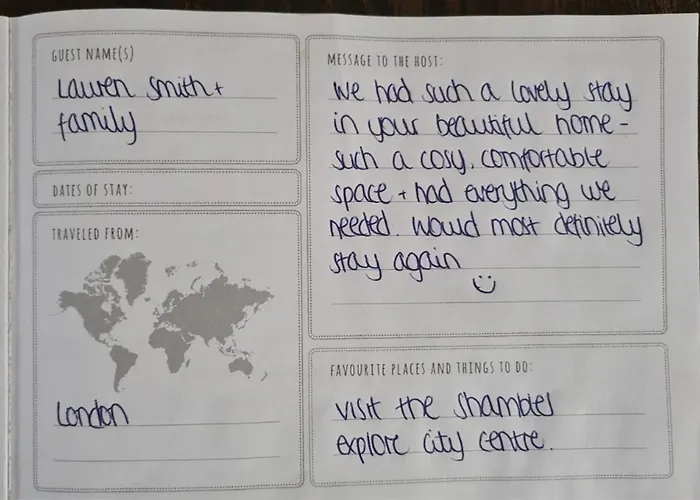 GUEST NAME(S)
Lauren Smith +
family
DATES OF STAY:
TRAVELED FROM:
London
MESSAGE TO THE HOST:
We had such a lovely stay
in your beautiful home -
such a cosy, comfortable
space + had everything we
needed. Would most definitely
stay again
FAVOURITE PLACES AND THINGS TO DO:
Visit the Shambles
explore city centre.